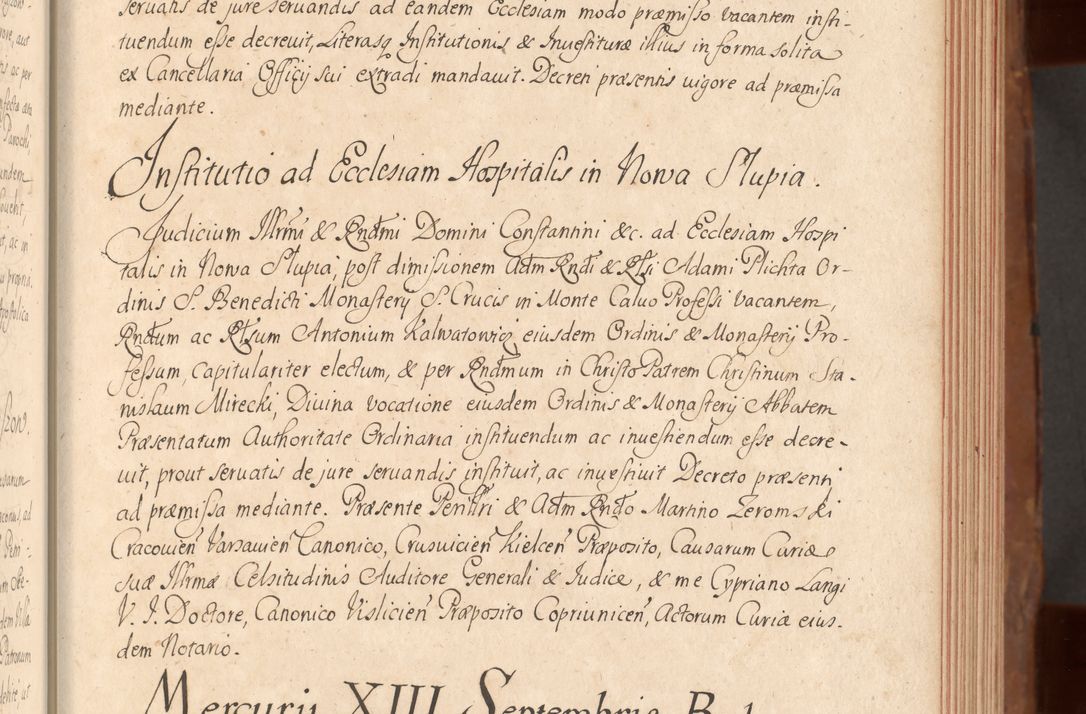 servatis de jure servandis ad eandem Ecclesiam modo præmisso vacantem insti-
tuendum esse decrevit, Literasq Institutionis & Investituræ illius in forma solita
ex Cancellaria Officij sui extradi mandavit. Decreti præsentis vigore ad præmissa
mediante.
Institutio ad Ecclesiam Hospitalis in Nowa Slupia.
Judicium Illrmi & Rndmi Domini Constantini &c. ad Ecclesiam Hospi
talis in Nowa Slupia, post dimissionem Adm Rndi & Rlsi Adami Plichta Or-
dinis S. Benedicti Monasterij S. Crucis in Monte Calvo Professi vacantem,
Rndum ac Rlsum Antonium Kalwatowicz eiusdem Ordinis & Monasterij Pro-
fessum, capitulariter electum, & per Rndmum in Christo Patrem Christinum Sta-
nislaum Mirecki, Divina vocatione eiusdem Ordinis & Monasterij Abbatem
Præsentatum Authoritate Ordinaria instituendum ac investiendum esse decre-
vit, prout servatis de jure servandis instituit, ac investivit Decreto præsenti
ad præmissa mediante. Præsente Perillri & Adm Rndo Martino Zeromski
Cracovien Varsavien Canonico, Crusvicien Kielcen Præposito, Causarum Curiæ
suæ Illrmæ Celsitudinis Auditore Generali & Judice, & me Cypriano Langi
V. J. Doctore, Canonico Vislicien Præposito Copriunicen, Actorum Curiæ eius-
dem Notario.
Mercurij XIII Septembris